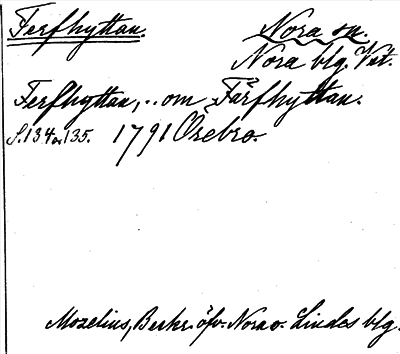 Ferfhyttan. Nora sn.
Nora blg. Vst.
Ferfhyttan, .. om Färfhyttan.
S. 134 o 135. 1791 Örebro.
Mozelius, Beskr. öfv. Nora o. Lindes blg.